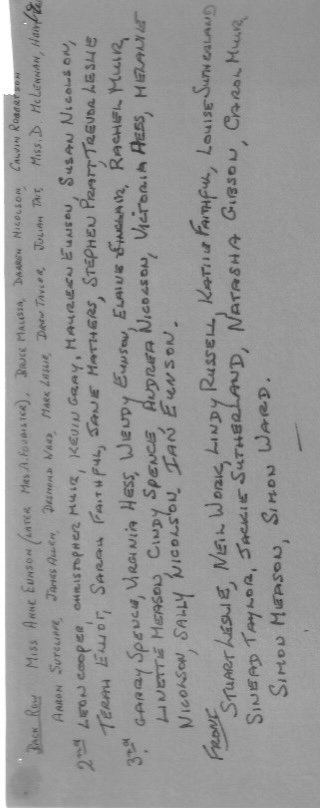 Back Row Miss Anne Eunson (Later Mrs. A. Foubister), Bruce Malissa, Darren Nicolson, Calvin Robertson
Aaron Sutcliffe, James Allen, Desmond Ward, Mark Leslie, Drew Taylor, Julian Tait, Miss. D McLennan,
2nd Leon Cooper, Christopher Muir, Kevin Gray, Maureen Eunson, Susan Nicolson,
Terah Elliot, Sarah Faithful, Jane Mathers, Stephen Pratt, Trevor Leslie
3rd. Garry Spence, Virginia Hess, Wendy Eunson, Elaine Sinclair, Rachel Muir,
Linette Meason Cindy Spence Andrea Nicolson, Victoria Hess, Melanie
Nicolson, Sally Nicolson, Ian Eunson.
Front Stuart Leslie, Neil Work, Lindy Russell, Katie Faithful, Louise Sutherland
Sinead Taylor, Jackie Sutherland, Natasha Gibson, Carol Muir,
Simon Meason, Simon Ward.